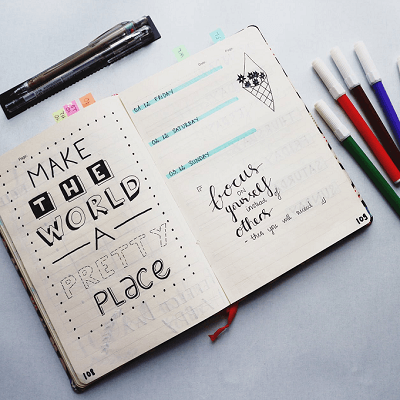 MAKE
THE
WORLD
A
PRETTY
PLACE
108
Date:
Page:
01.12. FRIDAY
02.12. SATURDAY
03.12. SUNDAY
focus
on
yourself
instead of
others
- then you will